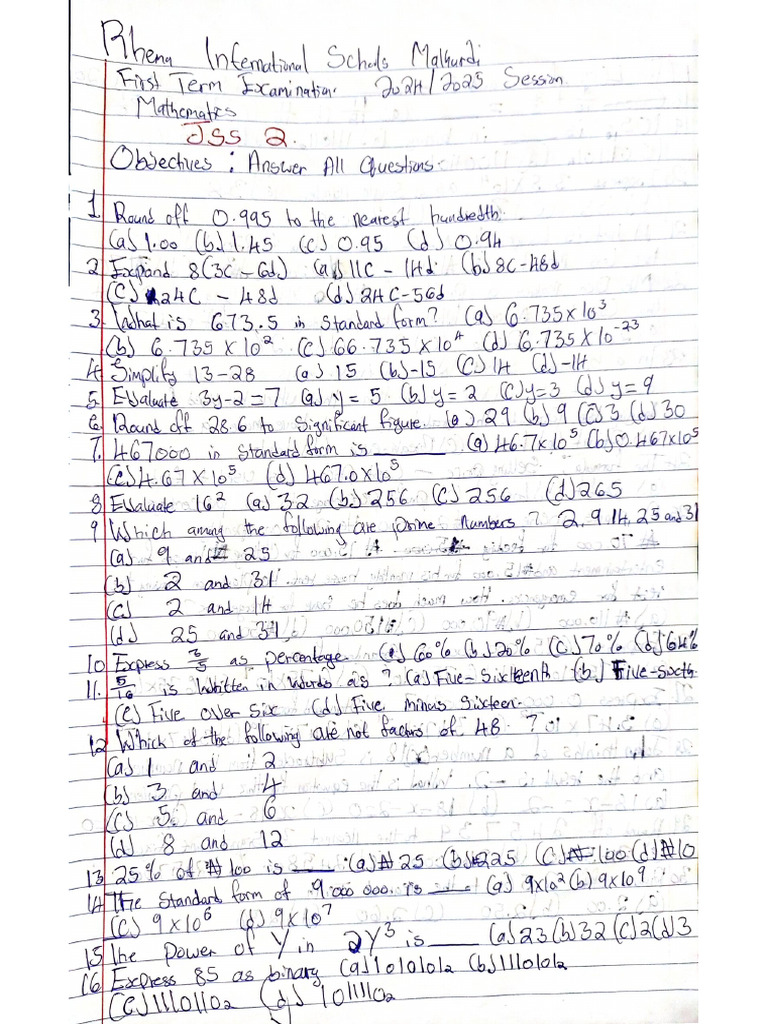 Rhema International Schools Makurdi
First Term Examination. 2024/2025 Session
Mathematics
JSS 2.
Objectives : Answer All Questions.
1. Round off 0.995 to the nearest hundredth
(a) 1.00 (b) 1.45 (c) 0.95 (d) 0.94
2 Expand 8(3c - 6d) (a) 11c - 14d (b) 8c-48d
(c) 24c - 48d (d) 24c-56d
3. What is 673.5 in standard form? (a) 6.735x10³
(b) 6.735 x 10² (c) 66.735x10⁴ (d) 6.735x10⁻²³
4. Simplify 13-28 (a) 15 (b)-15 (c) 14 (d)-14
5. Evaluate 3y-2=7 (a) y=5 (b) y=2 (c) y=3 (d) y=9
6. Round off 28.6 to significant figure. (a). 29 (b) 9 (c) 3 (d) 30
7. 467000 in standard form is ______ (a) 46.7x10⁵ (b) 0.467x10⁵
(c) 4.67x10⁵ (d) 467.0x10⁵
8 Evaluate 16² (a) 32 (b) 256 (c) 256 (d) 265
9 Which among the following are prime numbers ? 2, 9, 14, 25 and 31
(a) 9 and 25
(b) 2 and 31
(c) 2 and 14
(d) 25 and 31
10 Express 3/5 as percentage. (a) 60% (b) 20% (c) 70% (d) 64%
11. 5/16 is written in words as ? (a) Five-sixteenth (b) Five-sixth
(c) Five over six (d) Five minus sixteen.
12 Which of the following are not factors of 48 ?
(a) 1 and 2
(b) 3 and 4
(c) 5 and 6
(d) 8 and 12
13 25% of ₦100 is ____ (a) ₦25 (b) 225 (c) ₦100 (d) ₦10
14 The standard form of 9.000 000. is ____ (a) 9x10² (b) 9x10⁹
(c) 9x10⁶ (d) 9x10⁷
15 The power of Y in 2Y³ is ____ (a) 23 (b) 32 (c) 2 (d) 3
16 Express 85 as binary (a) 1010101₂ (b) 1110101₂
(c) 11101102 (d) 10111102